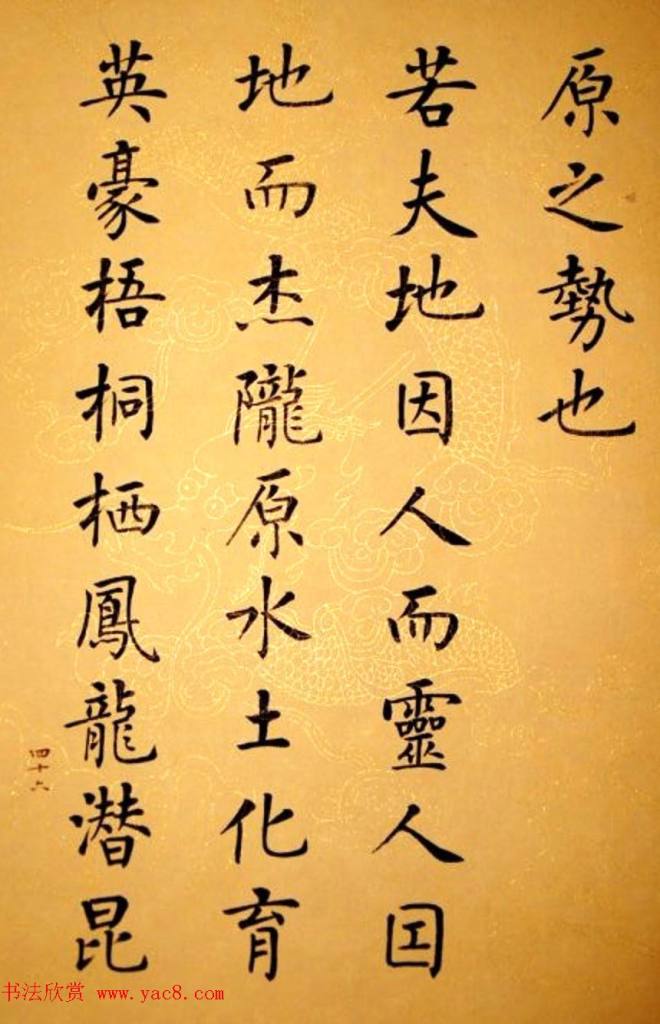 原之勢也
若夫地因人而靈人因
地而杰隴原水土化育
英豪梧桐栖鳳龍潛昆
四十六
书法欣赏 www.yac8.com